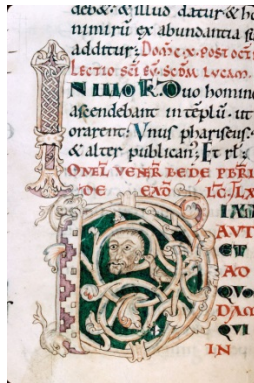 debet & illud datur & h
nimirũ ex abundantia
additur. Dom̃c. x. post oct
Lectio sc̃i eṽ. sc̃dm Lvcam.
IN ILLO ꝶ. Duo homine
ascendebant in tẽplũ. ut
orarent. Vnus phariseus.
& alter publican⁹. Et rł.
OMEL VENER BEDE PBRI
DE EAD LC̃
D
AUT
ET
AD
QUO
DAM
QUI
IN